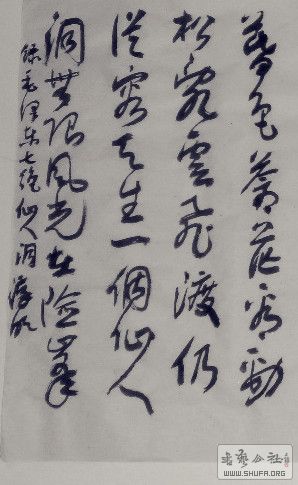 暮色蒼茫看勁
松亂雲飛渡仍
從容天生一個仙人
洞無限風光在險峯
錄毛澤東七絕仙人洞
书艺公社
WWW.SHUFA.ORG